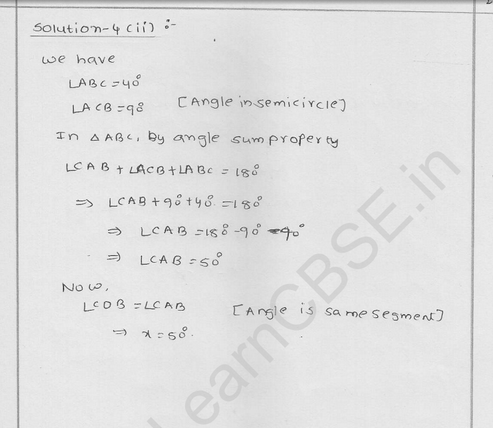 Solution-4(ii) :-
we have
∠ABC = 40°
∠ACB = 90° [Angle in semicircle]
In △ABC, by angle sum property
∠CAB + ∠ACB + ∠ABC = 180°
⇒ ∠CAB + 90° + 40° = 180°
⇒ ∠CAB = 180° - 90° - 40°
⇒ ∠CAB = 50°
Now,
∠CDB = ∠CAB [Angle is same segment]
⇒ x = 50°.
LearnCBSE.in